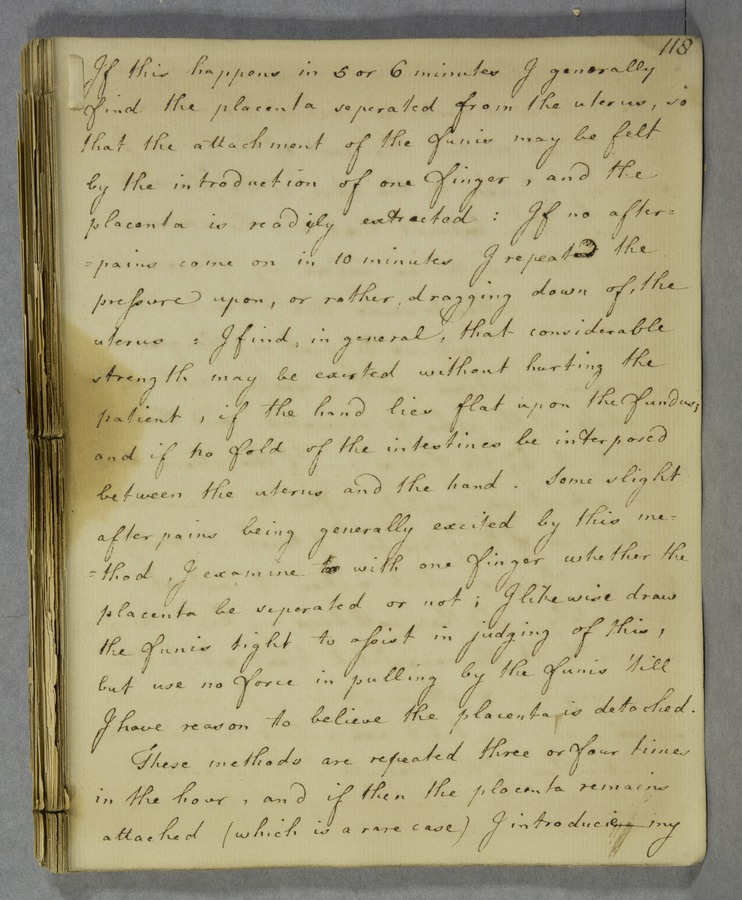 118
If this happens in 5 or 6 minutes I generally
find the placenta seperated from the uterus, so
that the attachment of the funis may be felt
by the introduction of one finger, and the
placenta is readily extracted: If no after=
=pains come on in 10 minutes I repeated the
pressure upon, or rather, dragging down of, the
uterus: I find, in general, that considerable
strength may be exerted without hurting the
patient, if the hand lies flat upon the fundus;
and if no fold of the intestines be interposed
between the uterus and the hand. Some slight
after pains being generally excited by this me=
=thod, I examine with one finger whether the
placenta be seperated or not; I likewise draw
the funis tight to assist in judging of this,
but use no force in pulling by the funis 'till
I have reason to believe the placenta is detached.
These methods are repeated three or four times
in the hour, and if then the placenta remains
attached (which is a rare case) I introduce my